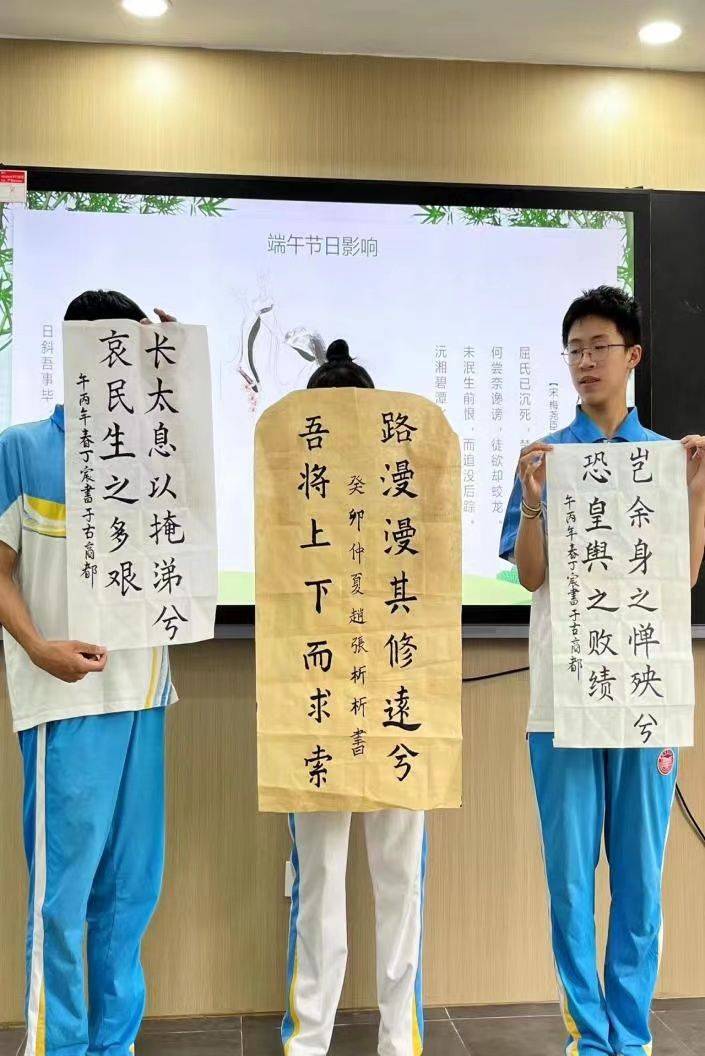 端午节日影响
日斜吾事毕
【宋 梅尧臣
屈氏已沉死，
何尝奈谗谤，徒欲却蛟龙。
未泯生前恨，而追没后踪。
沅湘碧潭
长太息以掩涕兮
哀民生之多艰
午丙年春丁宸書于古商都
路漫漫其修遠兮
癸卯仲夏趙張析析書
吾将上下而求索
岂余身之惮殃兮
恐皇舆之败绩
午丙年春丁宸書于古商都